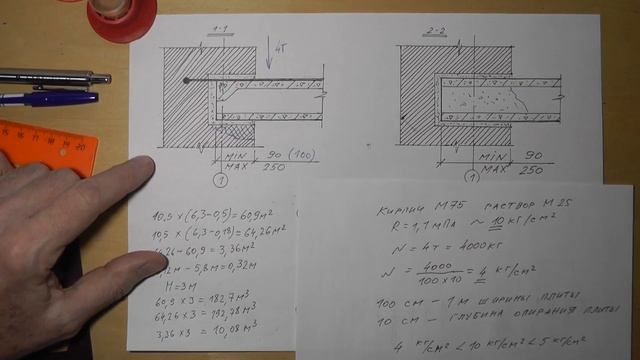 1-1
4Т
MIN 90 (100)
MAX 250
1
2-2
MIN 90
MAX 250
1
10,5 × (6,3-0,5) = 60,9 м²
10,5 × (6,3-0,18) = 64,26 м²
,26 - 60,9 = 3,36 м²
,12м - 5,8м = 0,32м
H = 3м
60,9 × 3 = 182,7 м³
64,26 × 3 = 192,78 м³
3,36 × 3 = 10,08 м³
КИРПИЧ М75 РАСТВОР М25
R = 1,1 МПА ~ 10 КГ/СМ²
N = 4Т = 4000 КГ
N = 4000 / 100×10 = 4 КГ/СМ²
100 СМ - 1М ШИРИНЫ ПЛИТЫ
10 СМ - ГЛУБИНА ОПИРАНИЯ ПЛИТЫ
4 КГ/СМ² < 10 КГ/СМ² < 5 КГ/СМ²